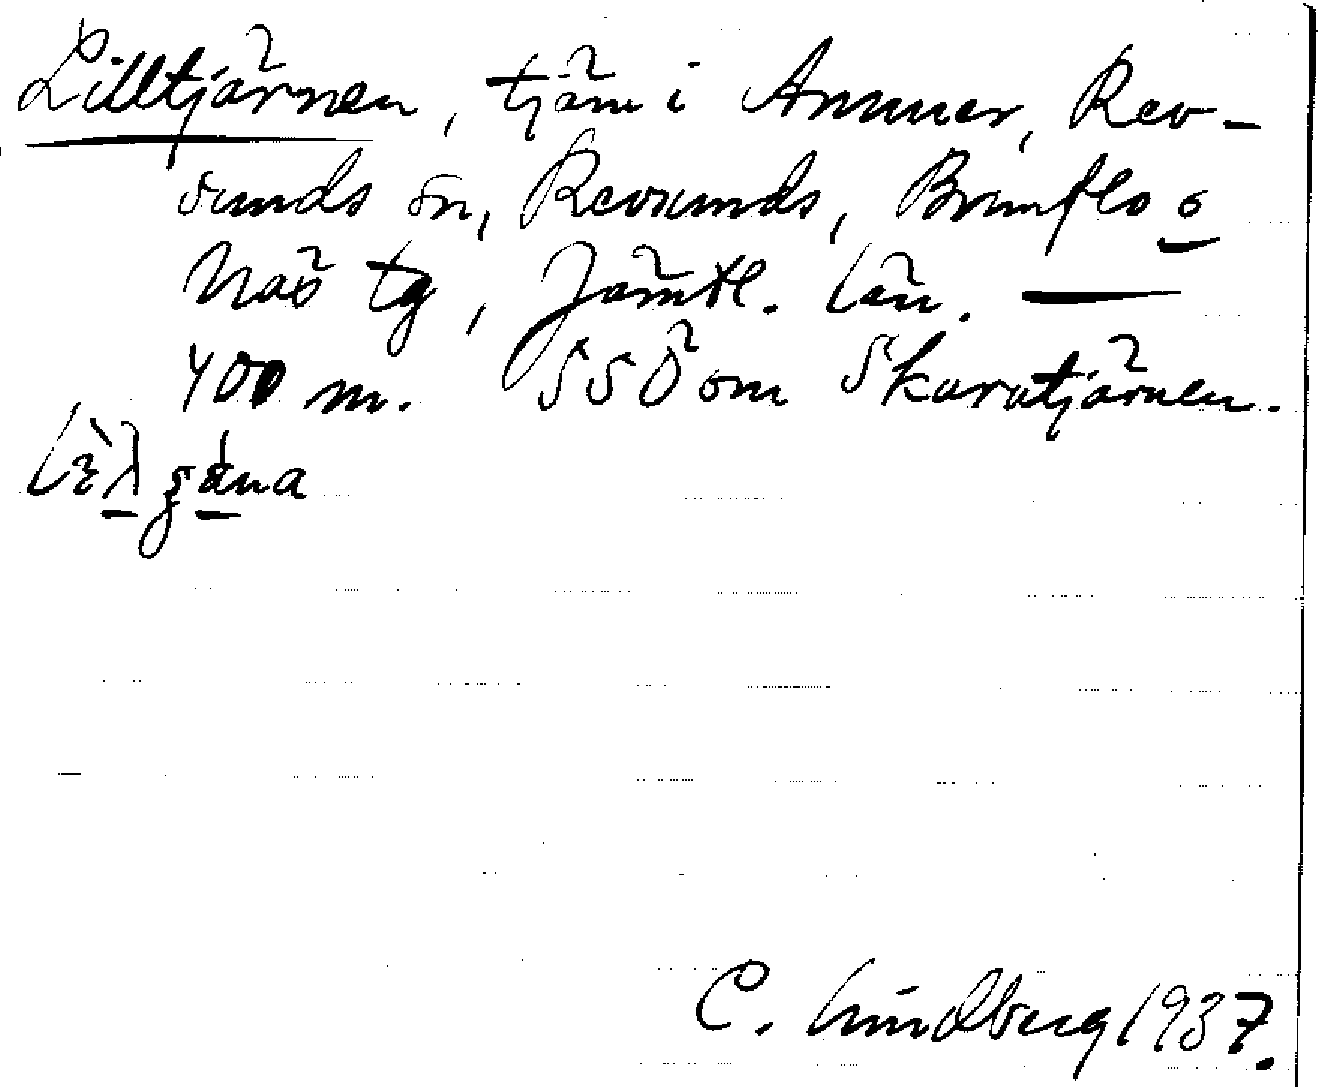 Lilltjärnen, tjärn i Ammer, Rev-
sunds sn, Revsunds, Brunflo o
Näs tg, Jämtl. län. —
400 m. SSÖ om Skaratjärnen.
C. Lindberg 1937.